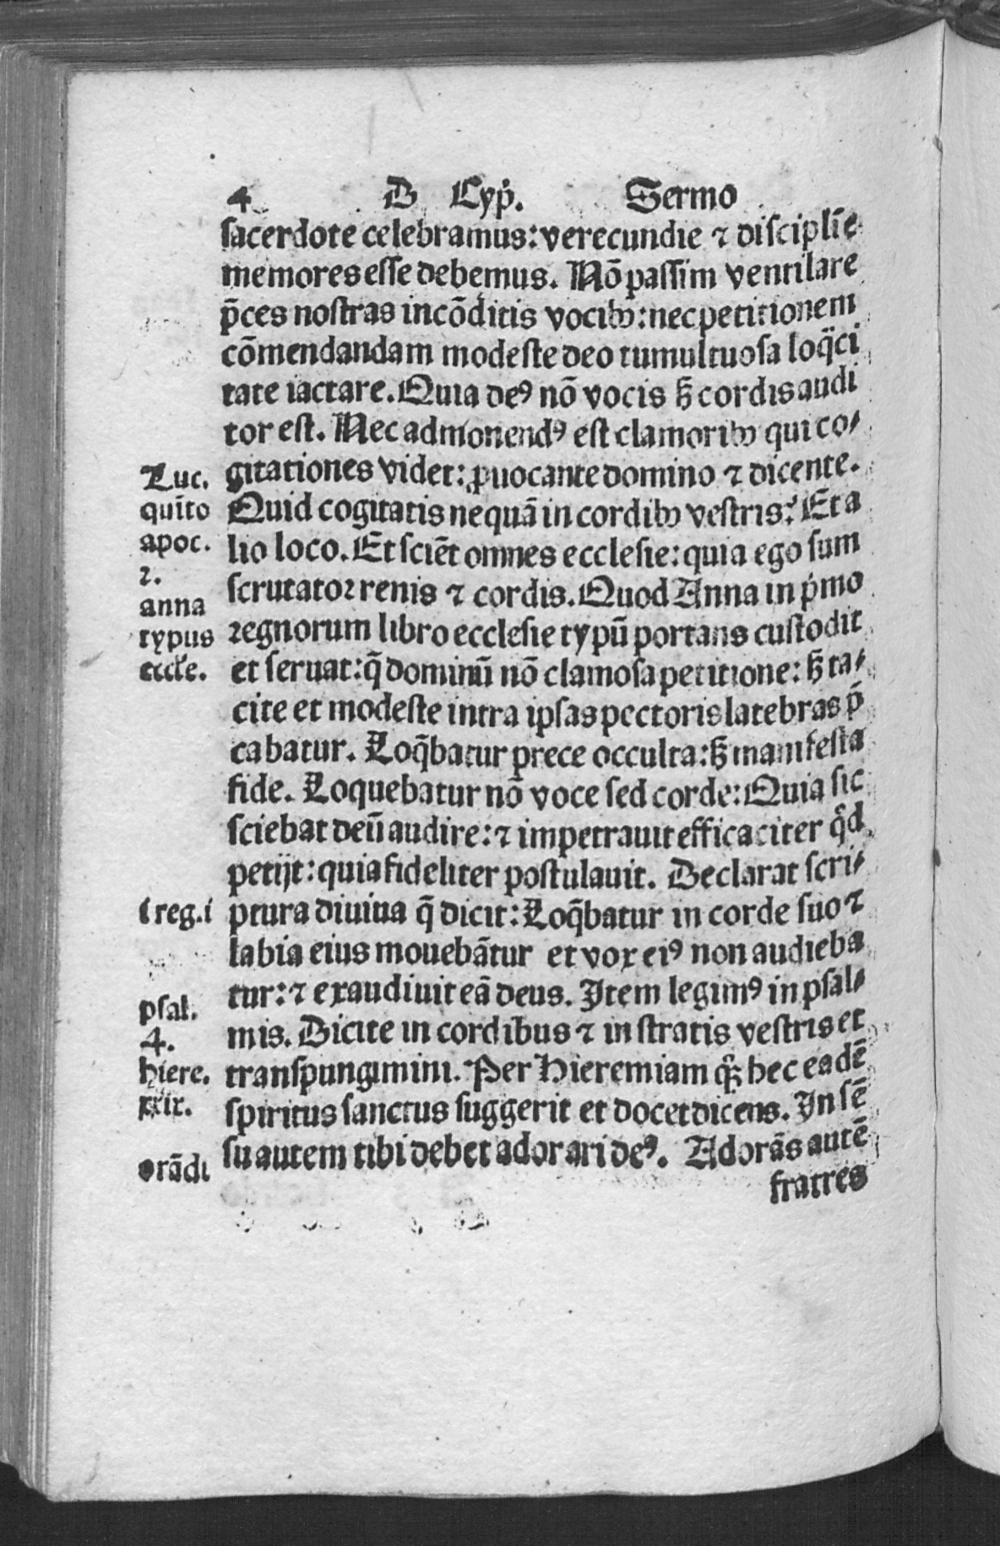 4 D Cyp̉. Sermo
sacerdote celebramus: verecundie ⁊ disciplīe
memores esse debemus. Nō passim ventilare
p̄ces nostras incōditis vocibꝰ: nec petitionem
cōmendandam modeste deo tumultuosa loq̄ci
tate iactare. Quia deꝰ nō vocis ß cordis audi
tor est. Nec admonendꝰ est clamoribꝰ qui co⸗
gitationes videt: ꝓuocante domino ⁊ dicente.
Luc.
quīto
Quid cogitatis nequā in cordibꝰ vestris? Et a
apoc.
2.
lio loco. Et sciēt omnes ecclesie: quia ego sum
scrutator renis ⁊ cordis. Quod Anna in p̉mo
anna
typus
eccl̄e.
regnorum libro ecclesie typū portans custodit
et seruat: q̄ dominū nō clamosa petitione: ß ta⸗
cite et modeste intra ipsas pectoris latebras p̄
cabatur. Loq̄batur prece occulta: ß manifesta
fide. Loquebatur nō voce sed corde: Quia sic
sciebat deū audire: ⁊ impetrauit efficaciter q̉d
petijt: quia fideliter postulauit. Declarat scri⸗
i reg.i
ptura diuina q̄ dicit: Loq̄batur in corde suo ⁊
labia eius mouebātur et vox eiꝰ non audieba
tur: ⁊ exaudiuit eā deus. Item legimꝰ in psal⸗
psal.
4.
mis. Dicite in cordibus ⁊ in stratis vestris et
hiere.
xxix.
transpungimini. Per Hieremiam qꝫ hec eadē
spiritus sanctus suggerit et docet dicens. In sē
orādi
su autem tibi debet adorari deꝰ. Adorās autē
fratres